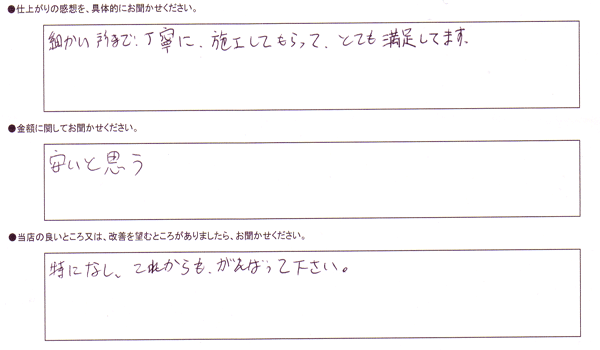 ●仕上がりの感想を、具体的にお聞かせください。
細かい所まで、丁寧に、施工してもらって、とても満足してます。
●金額に関してお聞かせください。
安いと思う
●当店の良いところ又は、改善を望むところがありましたら、お聞かせください。
特になし、これからも、がんばって下さい。